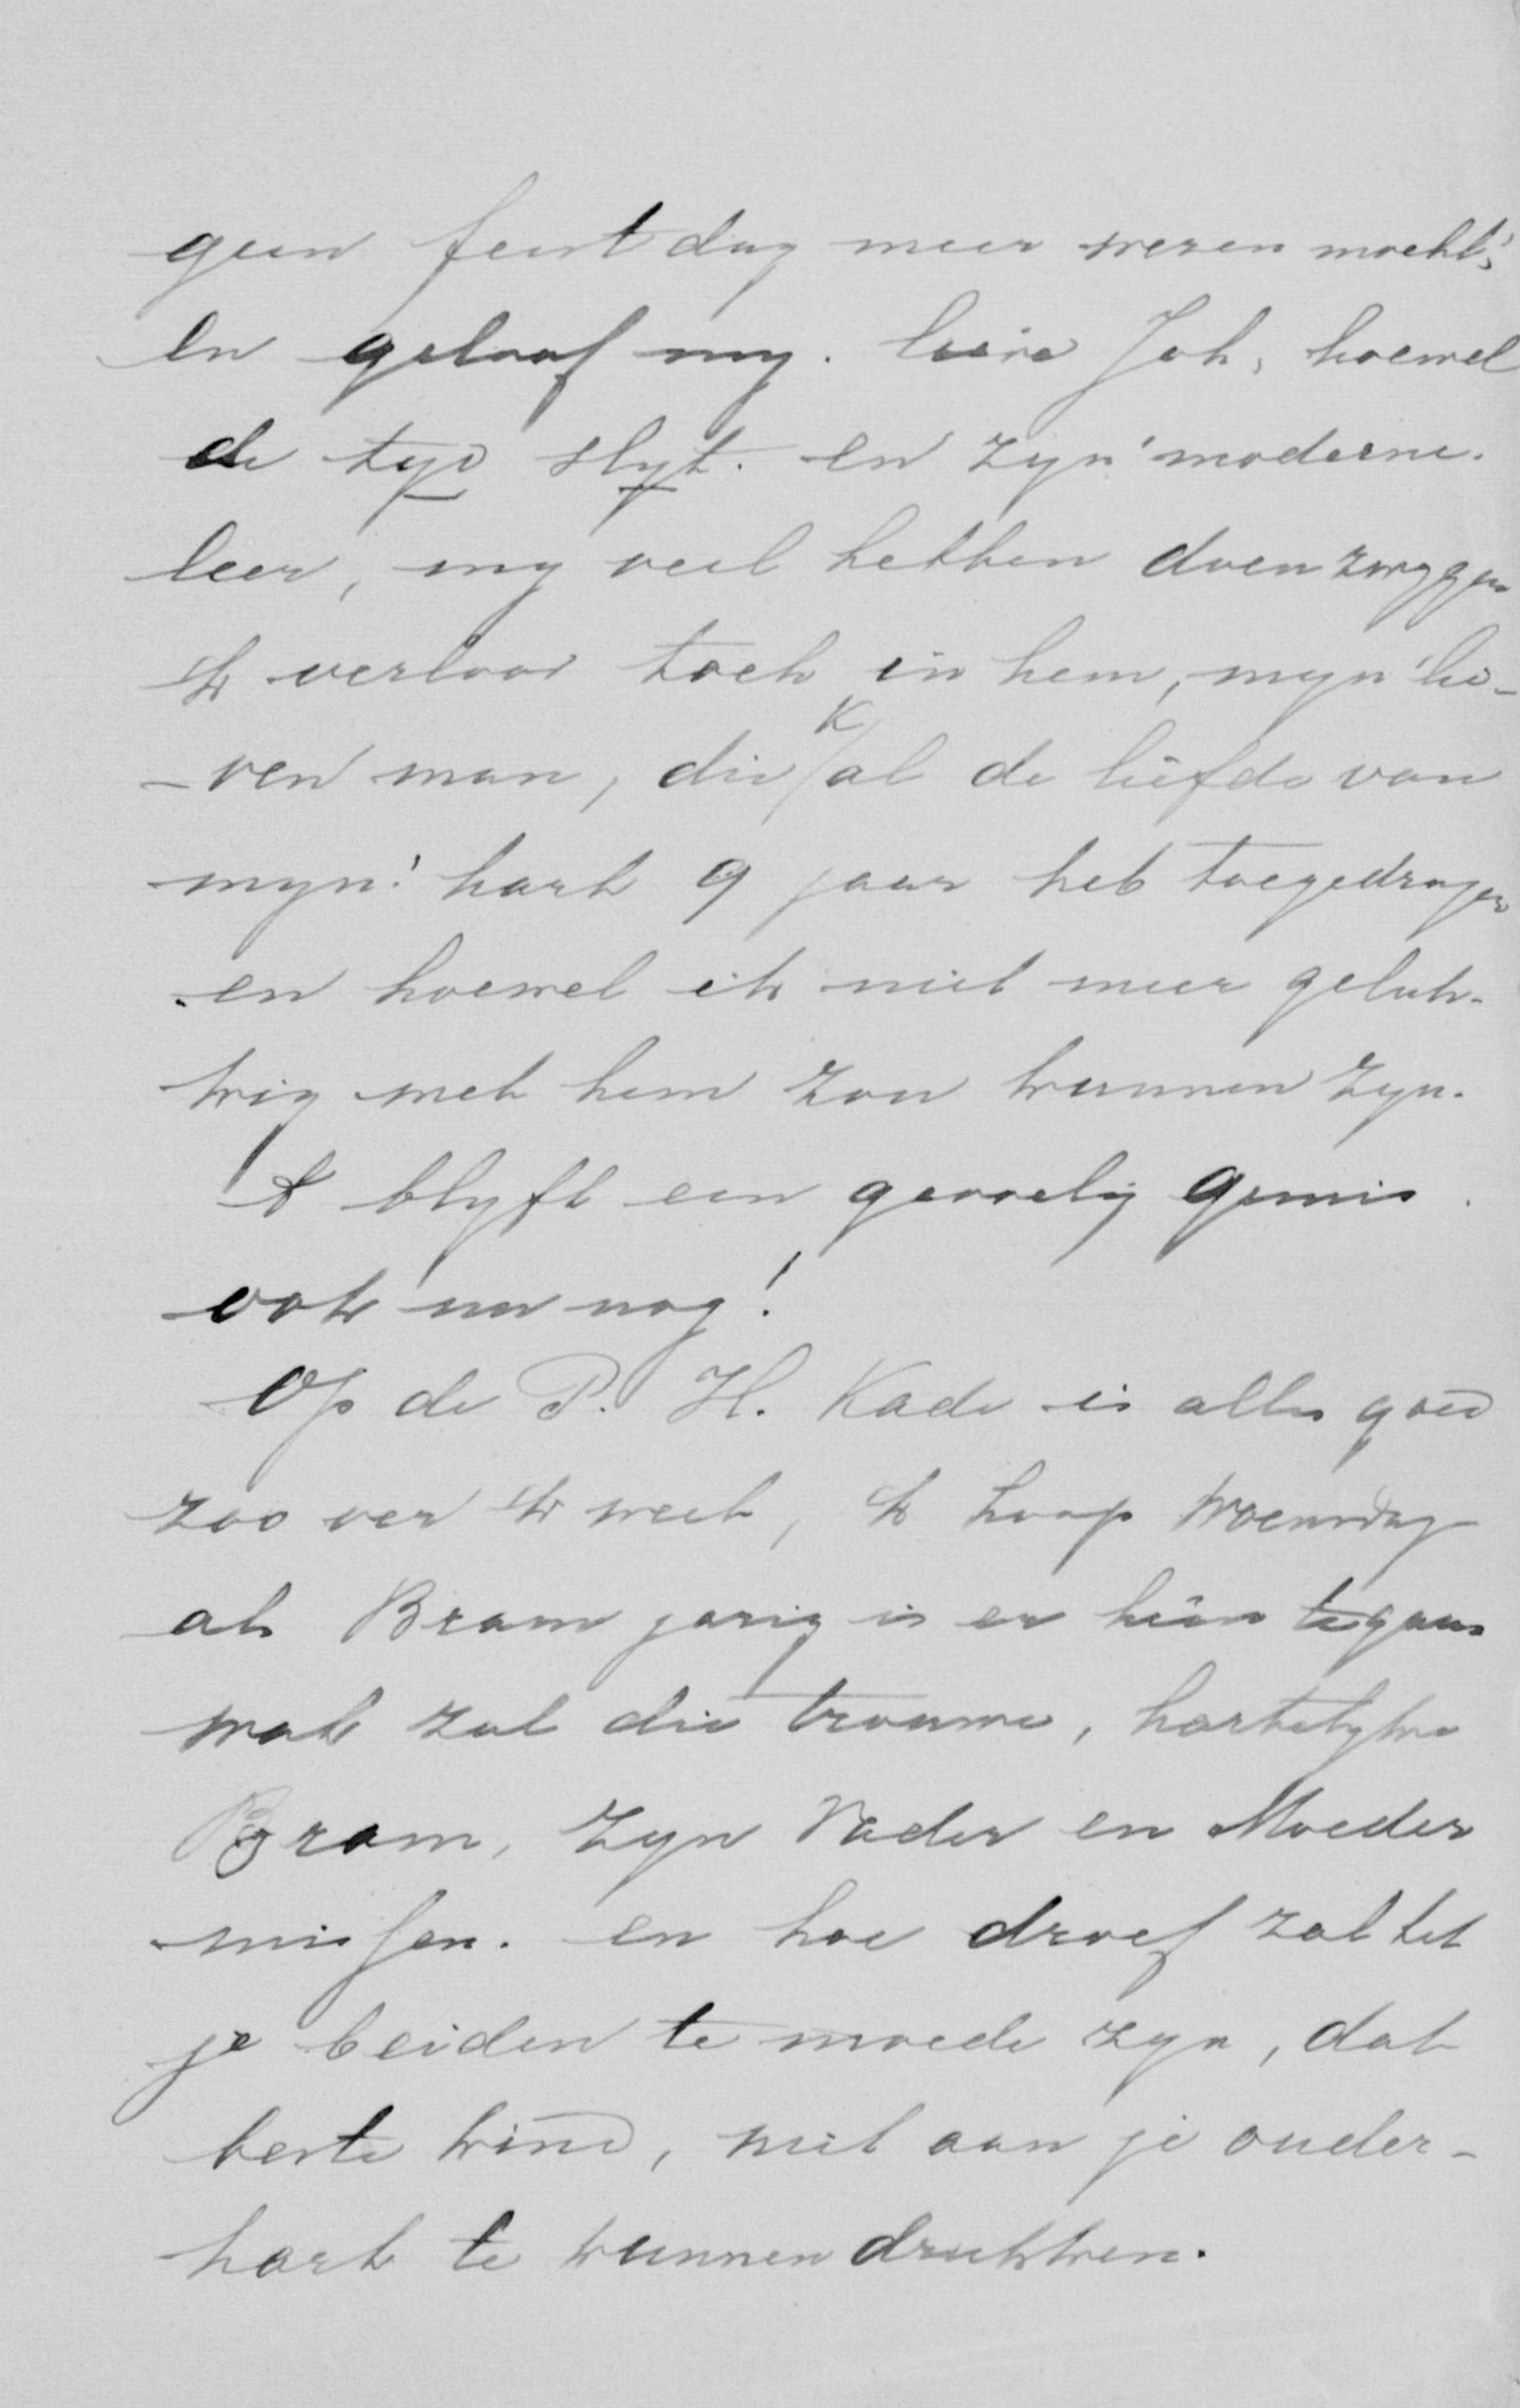 geen feestdag meer wezen mocht!
en geloof my. lieve Joh, hoewel
de tyd slyt. en zyn' moderne.
leer, my veel hebben doen zwygen
Ik verloor toch in hem, myn' lie-
-ven man, die ik al de liefde van
myn' hart 9 jaar heb toegedragen
en hoewel ik niet meer geluk-
kig met hem zou kunnen zyn.
't blyft een gevoelig gemis.
ook nu nog!
Op de P. H. Kade is alles goed
zoo ver ik weet, ik hoop Woensdag
als Bram jarig is er heen te gaan
wat zal die trouwe, hartelyke
Bram, zyn Vader en Moeder
missen. en hoe droef zal het
je beiden te moede zyn, dat
beste kind, niet aan je ouder-
hart te kunnen drukken.